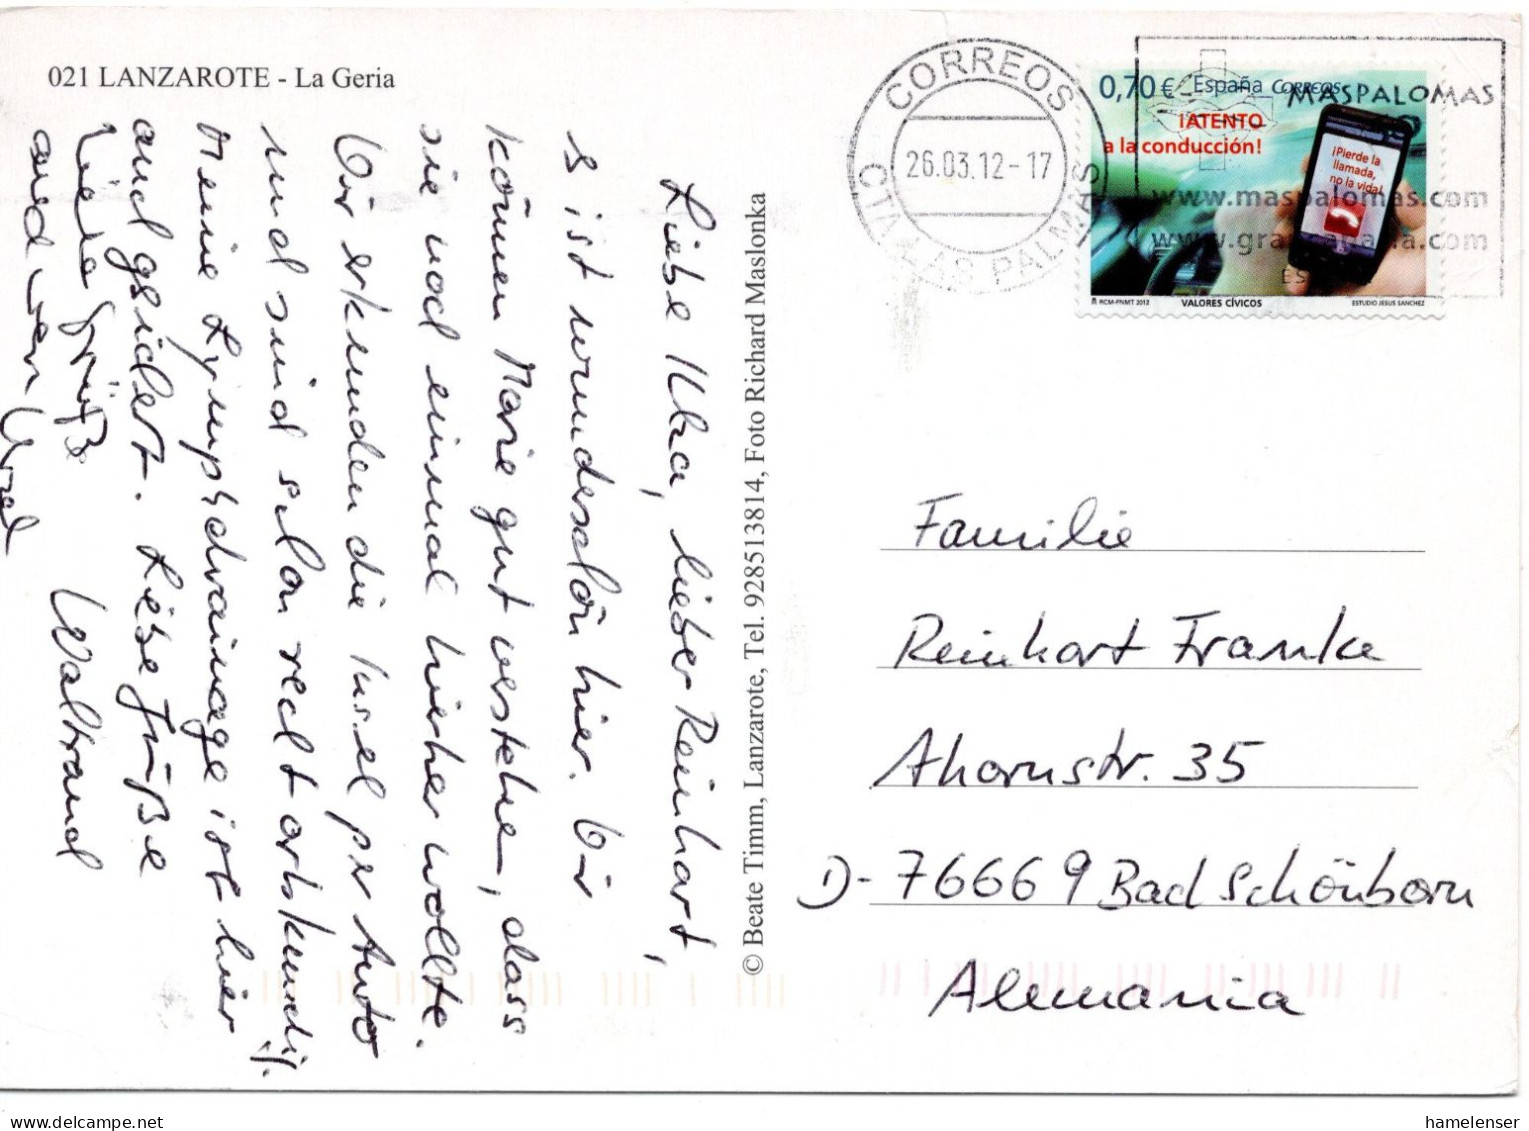 021 LANZAROTE - La Geria
Liebe Ilka, lieber Reinhart,
s ist wunderschön hier. Wir
können Marie gut verstehen, dass
sie noch einmal hierher wollte.
Wir erkunden die Insel per Auto
und sind schon recht ortskundig.
Meine Lymphdrainage ist hier
auch gsichert. Liebe Grüße
Waltraud
Liebe Grüße
und
© Beate Timm, Lanzarote, Tel. 928513814, Foto Richard Maslonka
CORREOS
26.03.12-17
CTA LAS PALMAS
0,70 € España CORREOS
¡ATENTO
a la conducción!
¡Pierde la
llamada,
no la vida!
RCM-FNMT 2012
VALORES CÍVICOS
ESTUDIO JESUS SANCHEZ
MASPALOMAS
www.maspalomas.com
www.grancanaria.com
Familie
Reinhart Franke
Ahornstr. 35
D-76669 Bad Schönborn
Alemania
hamelenser